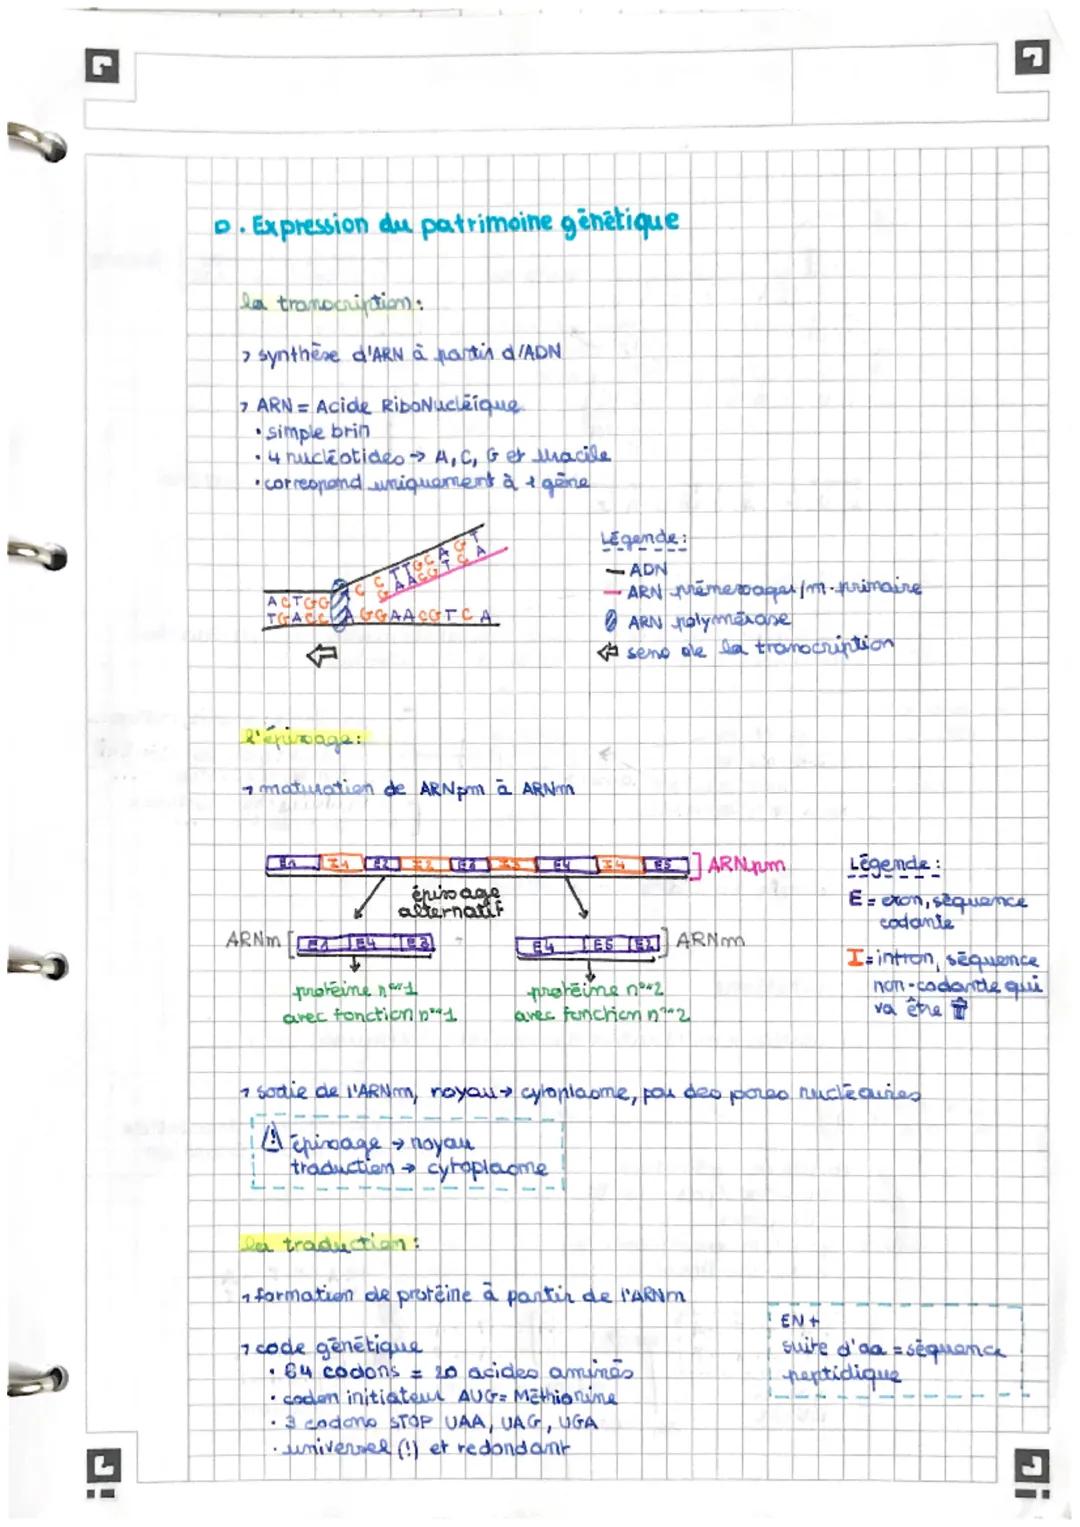 D. Expression du patrimoine génétique
la transcription:
> synthèse d'ARN à partir d'ADN
> ARN = Acide RiboNucléique
• simple brin
• 4 nucléotides → A, C, G et Uracile
• correspond uniquement à 1 gène
A C T G G
T G A C C
A G G A A C G T C A
C C T T G C A G T
G A A C G T C A
Légende:
— ADN
— ARN prémessager/m. primaire
ARN polymérase
⇦ sens de la transcription
l'épissage:
→ maturation de ARNpm à ARNm
E1 I1 E2 I2 E3 I3 E4 I4 E5 ] ARNpm
épissage
alternatif
ARNm [ E1 E4 E3
E4 E5 E2 ] ARNm
protéine n°1
avec fonction n°1
protéine n°2
avec fonction n°2
Légende:
E = exon, séquence
codante
I = intron, séquence
non-codante qui
va être
→ sortie de l'ARNm, noyau → cytoplasme, par des pores nucléaires
⚠ épissage → noyau
traduction → cytoplasme
la traduction:
→ formation de protéine à partir de l'ARNm
→ code génétique
• 64 codons = 20 acides aminés
• codon initiateur AUG = Méthionine
• 3 codons STOP UAA, UAG, UGA
• universel (!) et redondant
EN +
suite d'aa = séquence
peptidique